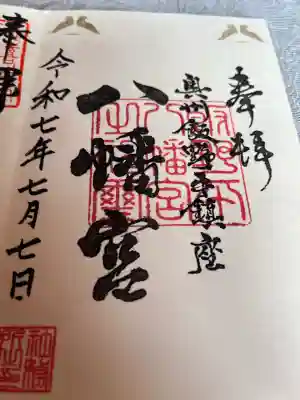 奉拝
奥州飯野平鎮座
八幡宮
令和七年七月七日
奉